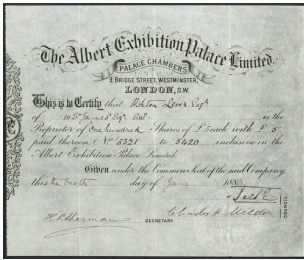 The Albert Exhibition Palace Limited.
PALACE CHAMBERS
9 BRIDGE STREET, WESTMINSTER,
LONDON, S.W.
This is to Certify that Ashton Lever Esqr
of 10 St James's Sqre SW is the
Proprietor of One hundred Shares of £5 each with £5
paid thereon No 5321 to 5420 inclusive in the
Albert Exhibition Palace Limited
Given under the Common Seal of the said Company
this the day of June
SECRETARY.